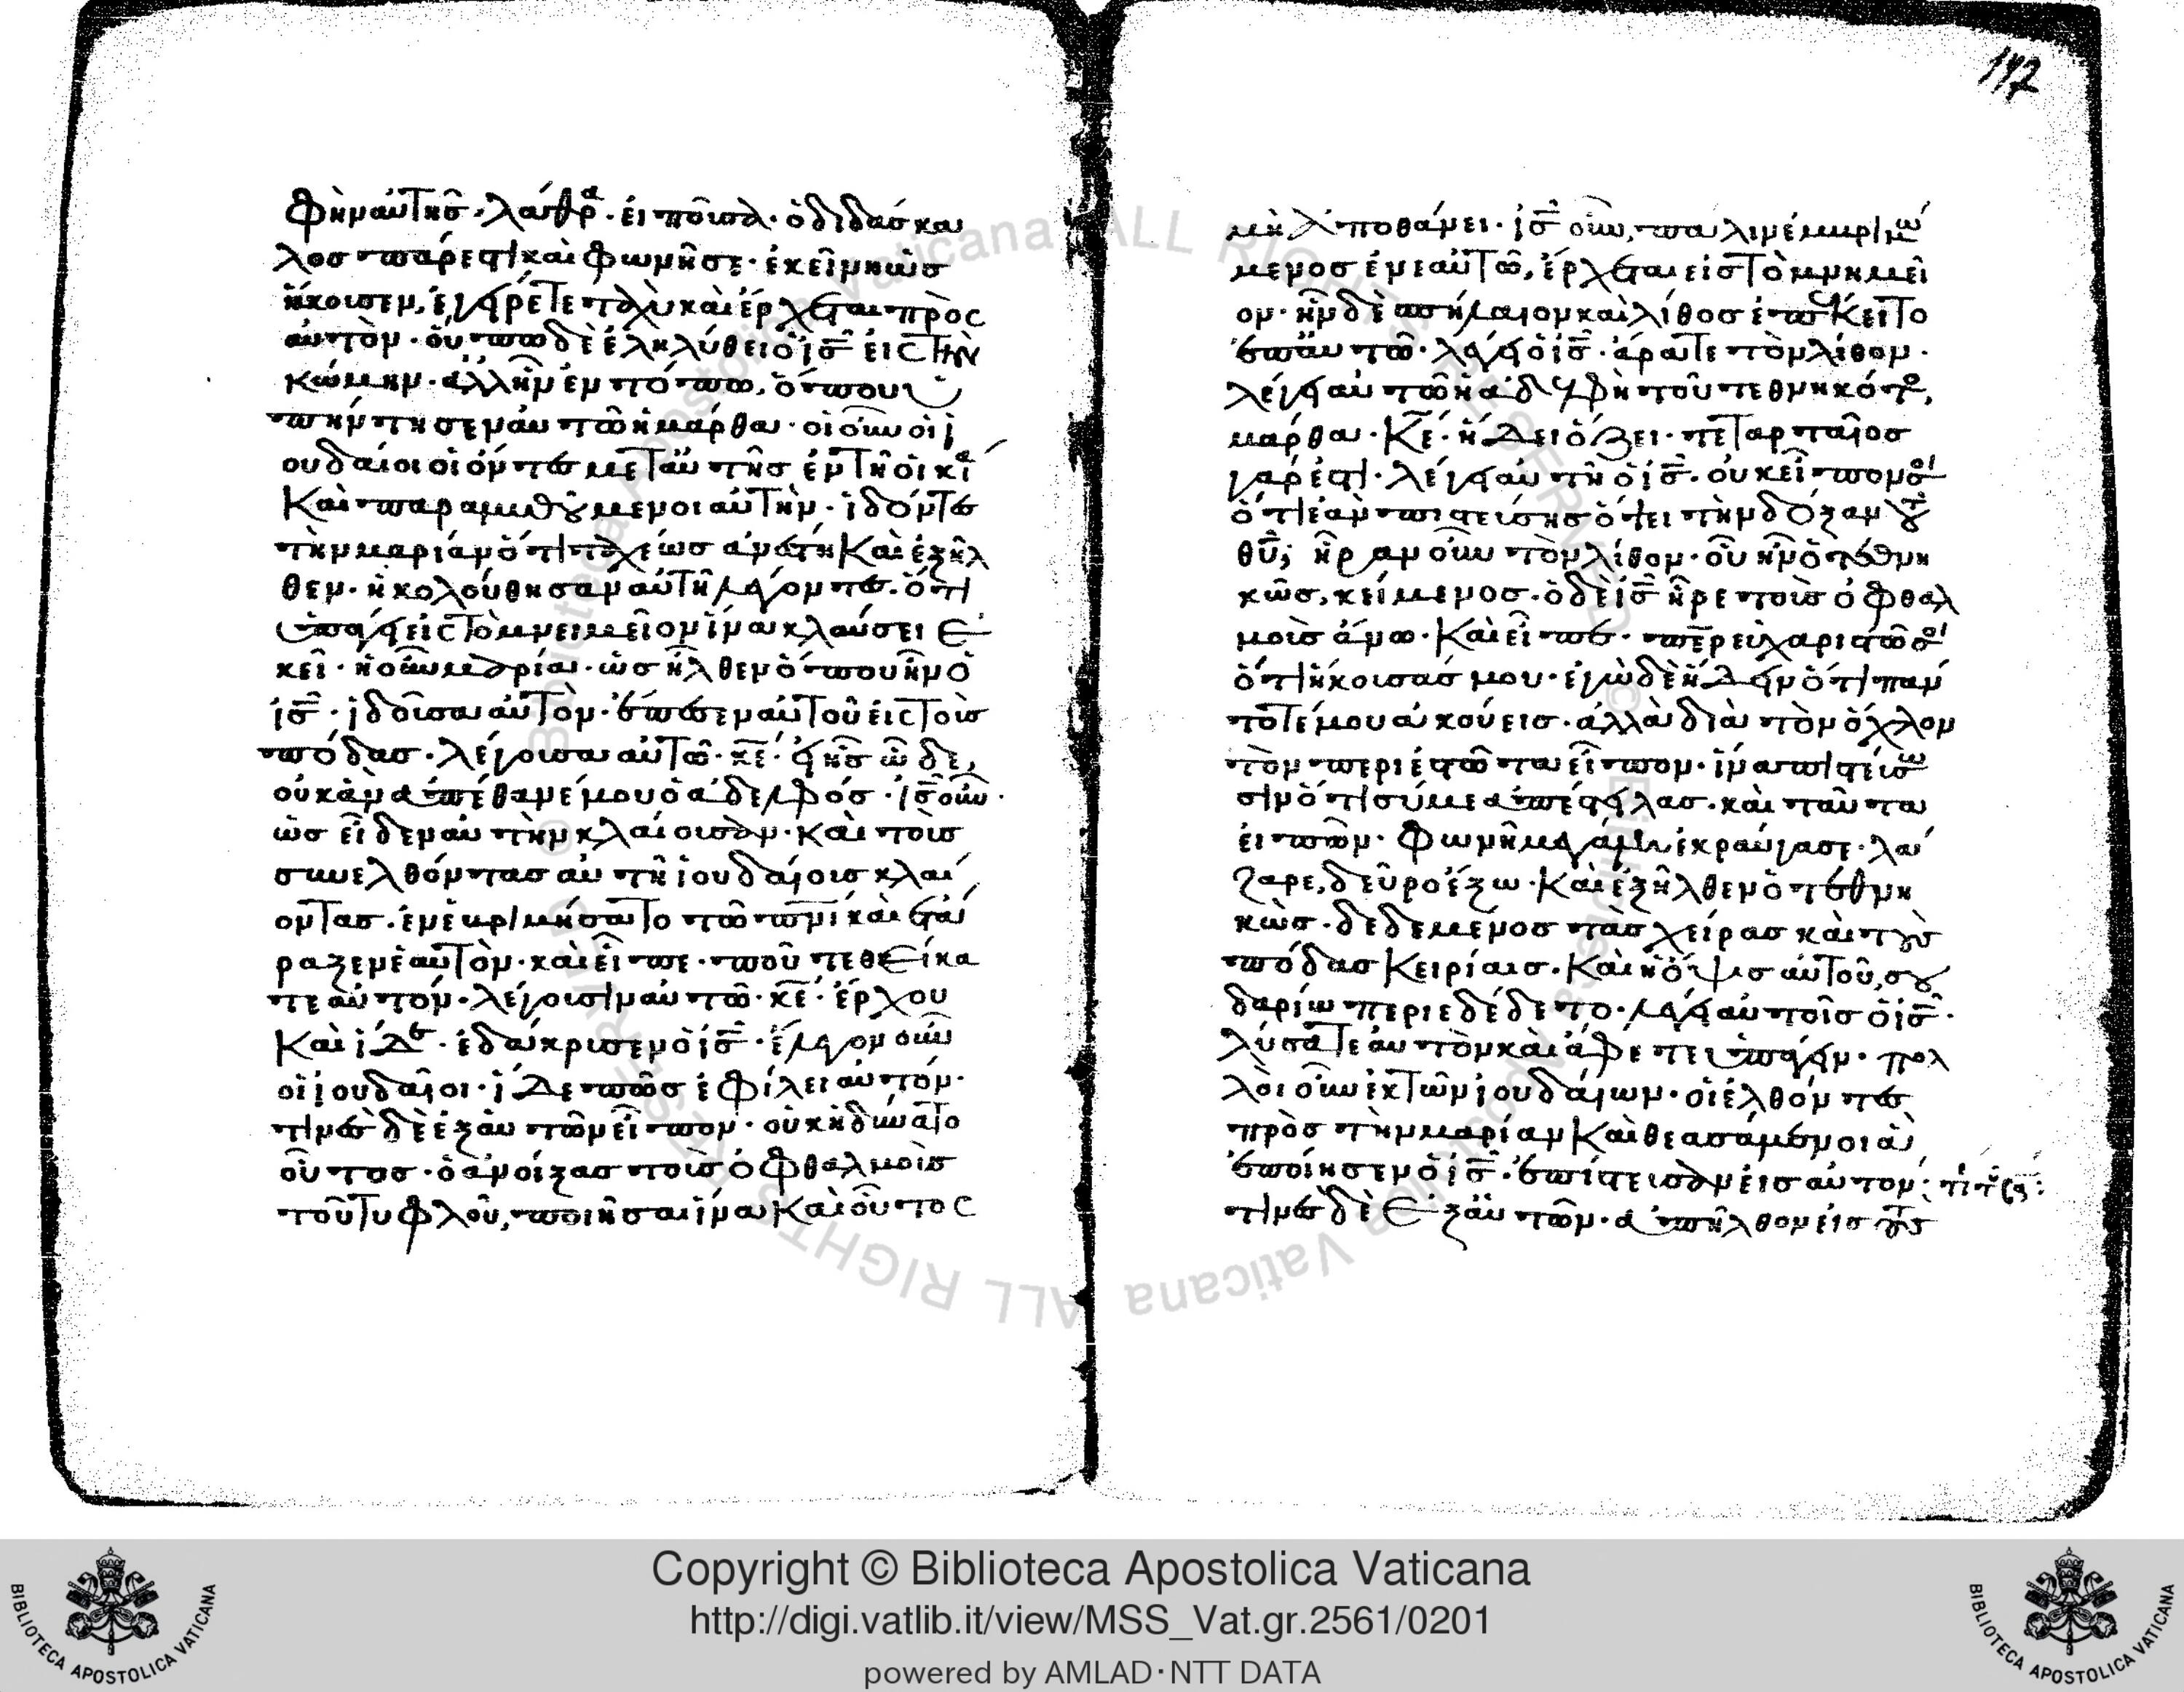 φὴν αὐτῆς· λάθρα· εἰποῦσα· ὁ διδάσκα
λος πάρεστι καὶ φωνῆσε· ἐκεῖνη ὡς
ἤκουσεν, ἐγείρετε ταχὺ καὶ ἔρχεται πρὸς
αὐτὸν· οὔπω δὲ ἐληλύθει ὁ ις̅ εἰς τὴν
κώμην· ἀλλ ἦν ἐν τόπω, ὅπου ὑ
πήντησεν αὐτῶ ἡ μάρθα· οἱ οὖν ἰ
ουδαίοι οἱ ὄντες μετ αὐτῆς ἐν τῆ οἰκία
καὶ παραμυθούμενοι αὐτὴν· ἰδόντες
τὴν μαρίαν ὅτι ταχέως ἀνέστη καὶ ἐξῆλ
θεν· ἠκολούθησαν αὐτῆ λέγοντες· ὅτι
ὑπάγει εἰς τὸ μνειμεῖον ἵνα κλαύσει ἐ
κεῖ· ἡ οὖν μαρία· ὡς ἦλθεν ὅπου ἦν ὁ
ις̅· ἰδοῦσα αὐτὸν· ἔπεσεν αὐτοῦ εἰς τοὺς
πόδας· λέγουσα αὐτῶ· κε̅· εἰ ἦς ὧδε,
οὐκ ἂν ἀπέθανέ μου ὁ ἀδελφός· ις̅ οὖν·
ὡς εἶδεν αὐτὴν κλαίουσαν· καὶ τοὺς
συνελθόντας αὐτῆ ἰουδαίους κλαί
οντας· ἐνεβριμήσατο τῶ πνι̅ καὶ ἐτά
ραξεν ἑαυτὸν· καὶ εἶπε· ποῦ τεθείκα
τε αὐτόν· λέγουσιν αὐτῶ· κε̅· ἔρχου
καὶ ἴδε· ἐδάκρυσεν ὁ ις̅· ἔλεγον οὖν
οἱ ἰουδαῖοι· ἴδε πῶς ἐφίλει αὐτόν·
τινὲς δὲ ἐξ αὐτῶν εἶπον· οὐκ ἠδύνατο
οὗτος· ὁ ἀνοίξας τοὺς ὀφθαλμοὺς
τοῦ τυφλοῦ, ποιῆσαι ἵνα καὶ οὗτος
147
μὴ ἀποθάνει· ις̅ οὖν, πάλιν ἐμβριμώ
μενος ἐν ἑαυτῶ, ἔρχεται εἰς τὸ μνημεῖ
ον· ἦν δὲ σπήλαιον καὶ λίθος ἐπέκειτο
ἐπ αὐτῶ· λέγει ὁ ις̅· ἄρατε τὸν λίθον·
λέγει αὐτῶ ἡ ἀδελφὴ τοῦ τεθνηκότος,
μάρθα· κε̅· ἤδει ὄζει· τεταρταῖος
γάρ ἐστι· λέγει αὐτῆ ὁ ις̅· οὐκ εἶπόν σοι
ὅτι ἐὰν πιστεύσης ὄψει τὴν δόξαν τοῦ
θυ̅; ἦραν οὖν τὸν λίθον· οὗ ἦν ὁ τεθνη
κῶς, κείμενος· ὁ δὲ ις̅ ἦρε τοὺς ὀφθαλ
μοὺς ἄνω· καὶ εἶπε· περ̅ εὐχαριστῶ σοι
ὅτι ἤκουσάς μου· ἐγὼ δὲ ἤδειν ὅτι πάν
τοτέ μου ἀκούεις· ἀλλὰ διὰ τὸν ὄχλον
τὸν περιεστῶτα εἶπον· ἵνα πιστεύσω
σιν ὅτι σύ με ἀπέστειλας· καὶ ταῦτα
εἰπὼν· φωνῆ μεγάλη ἐκραύγασε· λά
ζαρε, δεῦρο ἔξω· καὶ ἐξῆλθεν ὁ τεθνη
κὼς· δεδεμένος τὰς χείρας καὶ τοὺς
πόδας κειρίαις· καὶ ἡ ὄψις αὐτοῦ, σου
δαρίω περιεδέδετο· λέγει αὐτοῖς ὁ ις̅·
λύσατε αὐτὸν καὶ ἄφετε ὑπάγειν· πολ
λοὶ οὖν ἐκ τῶν ἰουδαίων· οἱ ἐλθόντες
πρὸς τὴν μαρίαν καὶ θεασάμενοι ἃ
ἐποίησεν ὁ ις̅· ἐπίστευσαν εἰς αὐτον·
τινὲς δὲ ἐξ αὐτῶν· ἀπῆλθον εἰς τοὺς
Copyright © Biblioteca Apostolica Vaticana
http://digi.vatlib.it/view/MSS_Vat.gr.2561/0201
powered by AMLAD·NTT DATA
BIBLIOTECA APOSTOLICA VATICANA
BIBLIOTECA APOSTOLICA VATICANA